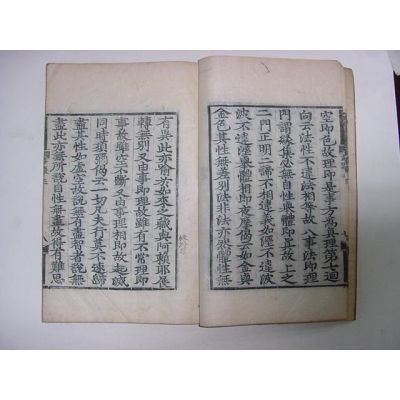 空即色故理即是事方為真理第七迴
向云法性不違法相等故八事法即理
門謂緣集必無自性舉體即真故上之
二門正明二諦不相違義如濕不違波
波不違濕舉體相即夜摩偈云如金與
金色其性無差別法非法亦然體性無
有異此亦喻於如來之藏與阿賴耶展
轉無別又由事即理故雖有不常理即
事故雖空不斷又由事理相即故起滅
同時須彌偈云一切凡夫行莫不速歸
盡其性如虛空故說無有盡智者說無
盡此亦無所說自性無盡故得有難思